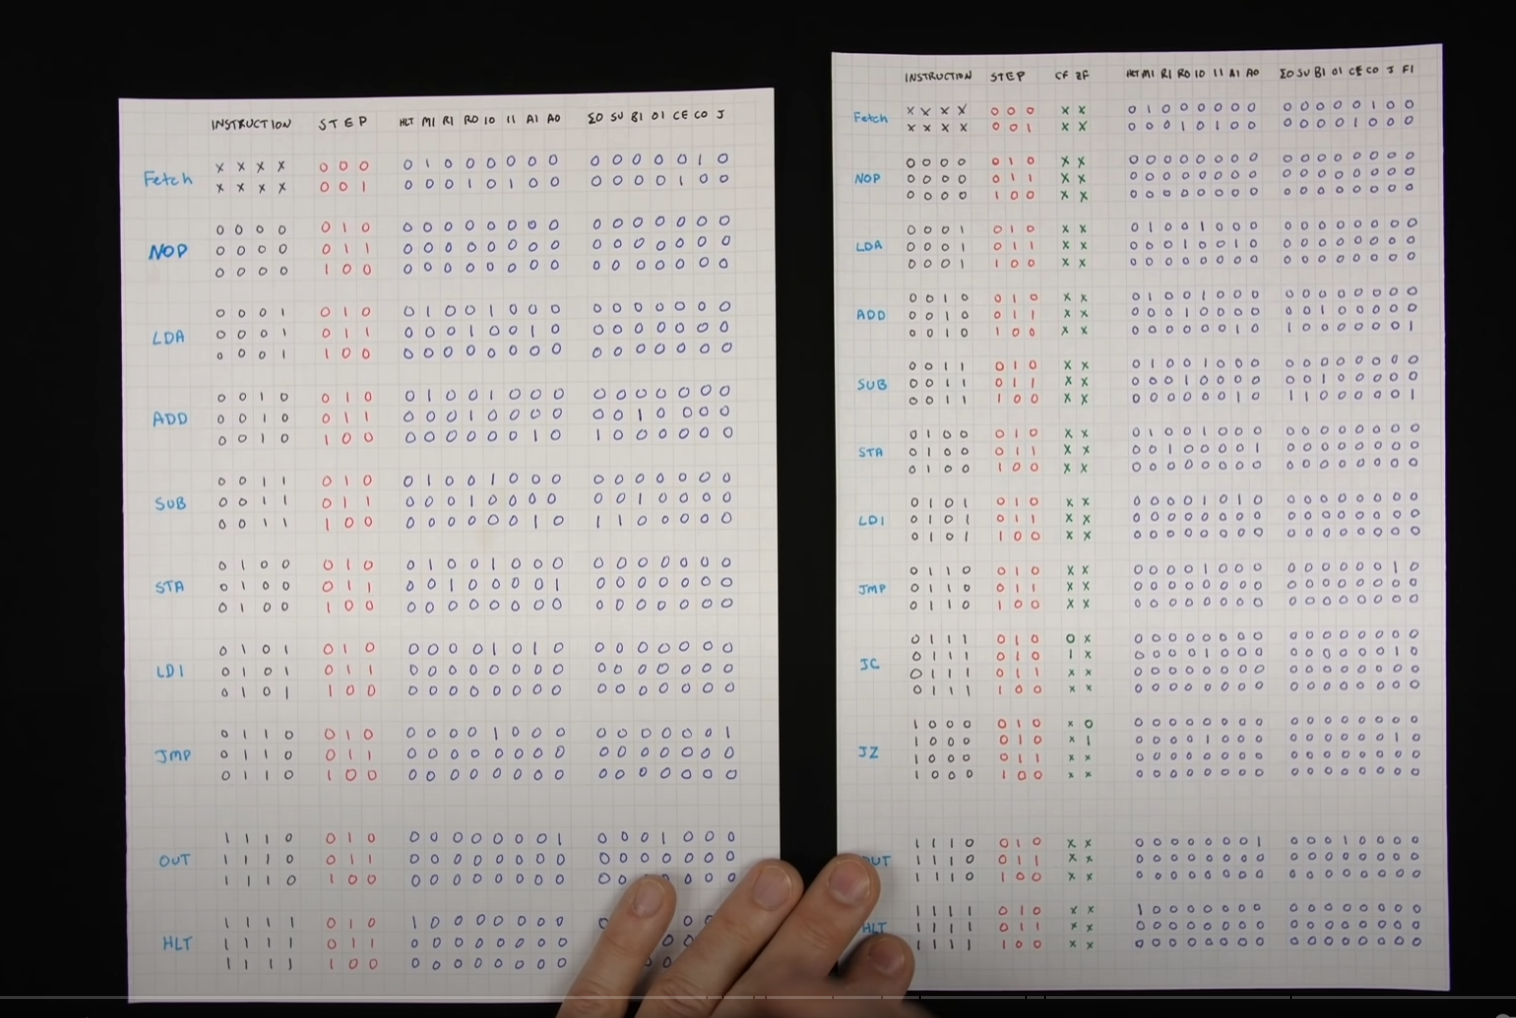 INSTRUCTION STEP HLT MI RI RO IO II AI AO ΣO SU BI OI CE CO J
Fetch x x x x 0 0 0 0 1 0 0 0 0 0 0 0 0 0 0 0 1 0
x x x x 0 0 1 0 0 0 1 0 1 0 0 0 0 0 0 1 0 0
0 0 0 0 0 1 0 0 0 0 0 0 0 0 0 0 0 0 0 0 0 0
NOP 0 0 0 0 0 1 1 0 0 0 0 0 0 0 0 0 0 0 0 0 0 0
0 0 0 0 1 0 0 0 0 0 0 0 0 0 0 0 0 0 0 0 0 0
0 0 0 1 0 1 0 0 1 0 0 1 0 0 0 0 0 0 0 0 0 0
LDA 0 0 0 1 0 1 1 0 0 0 1 0 0 1 0 0 0 0 0 0 0 0
0 0 0 1 1 0 0 0 0 0 0 0 0 0 0 0 0 0 0 0 0 0
0 0 1 0 0 1 0 0 1 0 0 1 0 0 0 0 0 0 0 0 0 0
ADD 0 0 1 0 0 1 1 0 0 0 1 0 0 0 0 0 0 1 0 0 0 0
0 0 1 0 1 0 0 0 0 0 0 0 0 1 0 1 0 0 0 0 0 0
0 0 1 1 0 1 0 0 1 0 0 1 0 0 0 0 0 0 0 0 0 0
SUB 0 0 1 1 0 1 1 0 0 0 1 0 0 0 0 0 0 1 0 0 0 0
0 0 1 1 1 0 0 0 0 0 0 0 0 1 0 1 1 0 0 0 0 0
0 1 0 0 0 1 0 0 1 0 0 1 0 0 0 0 0 0 0 0 0 0
STA 0 1 0 0 0 1 1 0 0 1 0 0 0 0 1 0 0 0 0 0 0 0
0 1 0 0 1 0 0 0 0 0 0 0 0 0 0 0 0 0 0 0 0 0
0 1 0 1 0 1 0 0 0 0 0 1 0 1 0 0 0 0 0 0 0 0
LDI 0 1 0 1 0 1 1 0 0 0 0 0 0 0 0 0 0 0 0 0 0 0
0 1 0 1 1 0 0 0 0 0 0 0 0 0 0 0 0 0 0 0 0 0
0 1 1 0 0 1 0 0 0 0 0 1 0 0 0 0 0 0 0 0 0 1
JMP 0 1 1 0 0 1 1 0 0 0 0 0 0 0 0 0 0 0 0 0 0 0
0 1 1 0 1 0 0 0 0 0 0 0 0 0 0 0 0 0 0 0 0 0
1 1 1 0 0 1 0 0 0 0 0 0 0 0 1 0 0 0 1 0 0 0
OUT 1 1 1 0 0 1 1 0 0 0 0 0 0 0 0 0 0 0 0 0 0 0
1 1 1 0 1 0 0 0 0 0 0 0 0 0 0 0 0 0 0 0 0 0
1 1 1 1 0 1 0 1 0 0 0 0 0 0 0 0 0 0
HLT 1 1 1 1 0 1 1 0 0 0 0 0 0 0 0 0 0
1 1 1 1 1 0 0 0 0 0 0 0 0 0 0 0 0
INSTRUCTION STEP CF ZF HLT MI RI RO IO II AI AO ΣO SU BI OI CE CO J FI
Fetch x x x x 0 0 0 x x 0 1 0 0 0 0 0 0 0 0 0 0 0 1 0 0
x x x x 0 0 1 x x 0 0 0 1 0 1 0 0 0 0 0 0 1 0 0 0
0 0 0 0 0 1 0 x x 0 0 0 0 0 0 0 0 0 0 0 0 0 0 0 0
NOP 0 0 0 0 0 1 1 x x 0 0 0 0 0 0 0 0 0 0 0 0 0 0 0 0
0 0 0 0 1 0 0 x x 0 0 0 0 0 0 0 0 0 0 0 0 0 0 0 0
0 0 0 1 0 1 0 x x 0 1 0 0 1 0 0 0 0 0 0 0 0 0 0 0
LDA 0 0 0 1 0 1 1 x x 0 0 0 1 0 0 1 0 0 0 0 0 0 0 0 0
0 0 0 1 1 0 0 x x 0 0 0 0 0 0 0 0 0 0 0 0 0 0 0 0
0 0 1 0 0 1 0 x x 0 1 0 0 1 0 0 0 0 0 0 0 0 0 0 0
ADD 0 0 1 0 0 1 1 x x 0 0 0 1 0 0 0 0 0 0 1 0 0 0 0 0
0 0 1 0 1 0 0 x x 0 0 0 0 0 0 1 0 1 0 0 0 0 0 0 1
0 0 1 1 0 1 0 x x 0 1 0 0 1 0 0 0 0 0 0 0 0 0 0 0
SUB 0 0 1 1 0 1 1 x x 0 0 0 1 0 0 0 0 0 0 1 0 0 0 0 0
0 0 1 1 1 0 0 x x 0 0 0 0 0 0 1 0 1 1 0 0 0 0 0 1
0 1 0 0 0 1 0 x x 0 1 0 0 1 0 0 0 0 0 0 0 0 0 0 0
STA 0 1 0 0 0 1 1 x x 0 0 1 0 0 0 0 1 0 0 0 0 0 0 0 0
0 1 0 0 1 0 0 x x 0 0 0 0 0 0 0 0 0 0 0 0 0 0 0 0
0 1 0 1 0 1 0 x x 0 0 0 0 1 0 1 0 0 0 0 0 0 0 0 0
LDI 0 1 0 1 0 1 1 x x 0 0 0 0 0 0 0 0 0 0 0 0 0 0 0 0
0 1 0 1 1 0 0 x x 0 0 0 0 0 0 0 0 0 0 0 0 0 0 0 0
0 1 1 0 0 1 0 x x 0 0 0 0 1 0 0 0 0 0 0 0 0 0 1 0
JMP 0 1 1 0 0 1 1 x x 0 0 0 0 0 0 0 0 0 0 0 0 0 0 0 0
0 1 1 0 1 0 0 x x 0 0 0 0 0 0 0 0 0 0 0 0 0 0 0 0
0 1 1 1 0 1 0 0 x 0 0 0 0 0 0 0 0 0 0 0 0 0 0 0 0
JC 0 1 1 1 0 1 0 1 x 0 0 0 0 1 0 0 0 0 0 0 0 0 0 1 0
0 1 1 1 0 1 1 x x 0 0 0 0 0 0 0 0 0 0 0 0 0 0 0 0
0 1 1 1 1 0 0 x x 0 0 0 0 0 0 0 0 0 0 0 0 0 0 0 0
1 0 0 0 0 1 0 x 0 0 0 0 0 0 0 0 0 0 0 0 0 0 0 0 0
JZ 1 0 0 0 0 1 0 x 1 0 0 0 0 1 0 0 0 0 0 0 0 0 0 1 0
1 0 0 0 0 1 1 x x 0 0 0 0 0 0 0 0 0 0 0 0 0 0 0 0
1 0 0 0 1 0 0 x x 0 0 0 0 0 0 0 0 0 0 0 0 0 0 0 0
1 1 1 0 0 1 0 x x 0 0 0 0 0 0 0 1 0 0 0 1 0 0 0 0
OUT 1 1 1 0 0 1 1 x x 0 0 0 0 0 0 0 0 0 0 0 0 0 0 0 0
1 1 1 0 1 0 0 x x 0 0 0 0 0 0 0 0 0 0 0 0 0 0 0 0
1 1 1 1 0 1 0 x x 1 0 0 0 0 0 0 0 0 0 0 0 0 0 0 0
HLT 1 1 1 1 0 1 1 x x 0 0 0 0 0 0 0 0 0 0 0 0 0 0 0 0
1 1 1 1 1 0 0 x x 0 0 0 0 0 0 0 0 0 0 0 0 0 0 0 0